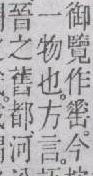 御覽作密。今
一物也。方言。
晉之舊都河